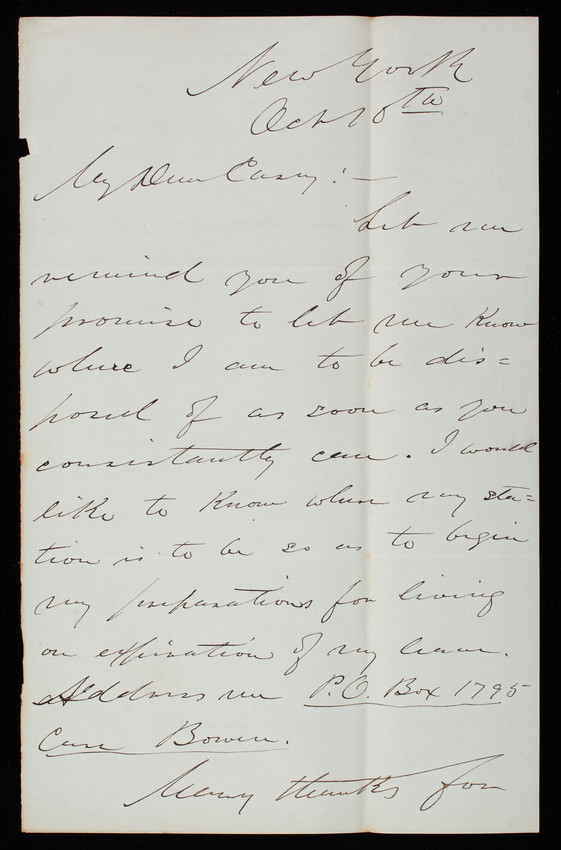 New York
Oct 18th
My Dear Casey:—
Let me
remind you of your
promise to let me know
where I am to be dis=
posed of as soon as you
consistantly can. I would
like to know where my sta=
tion is to be so as to begin
my preparations for living
on expiration of my leave.
Address me P.O. Box 1795
Care Bowen.
Many thanks for